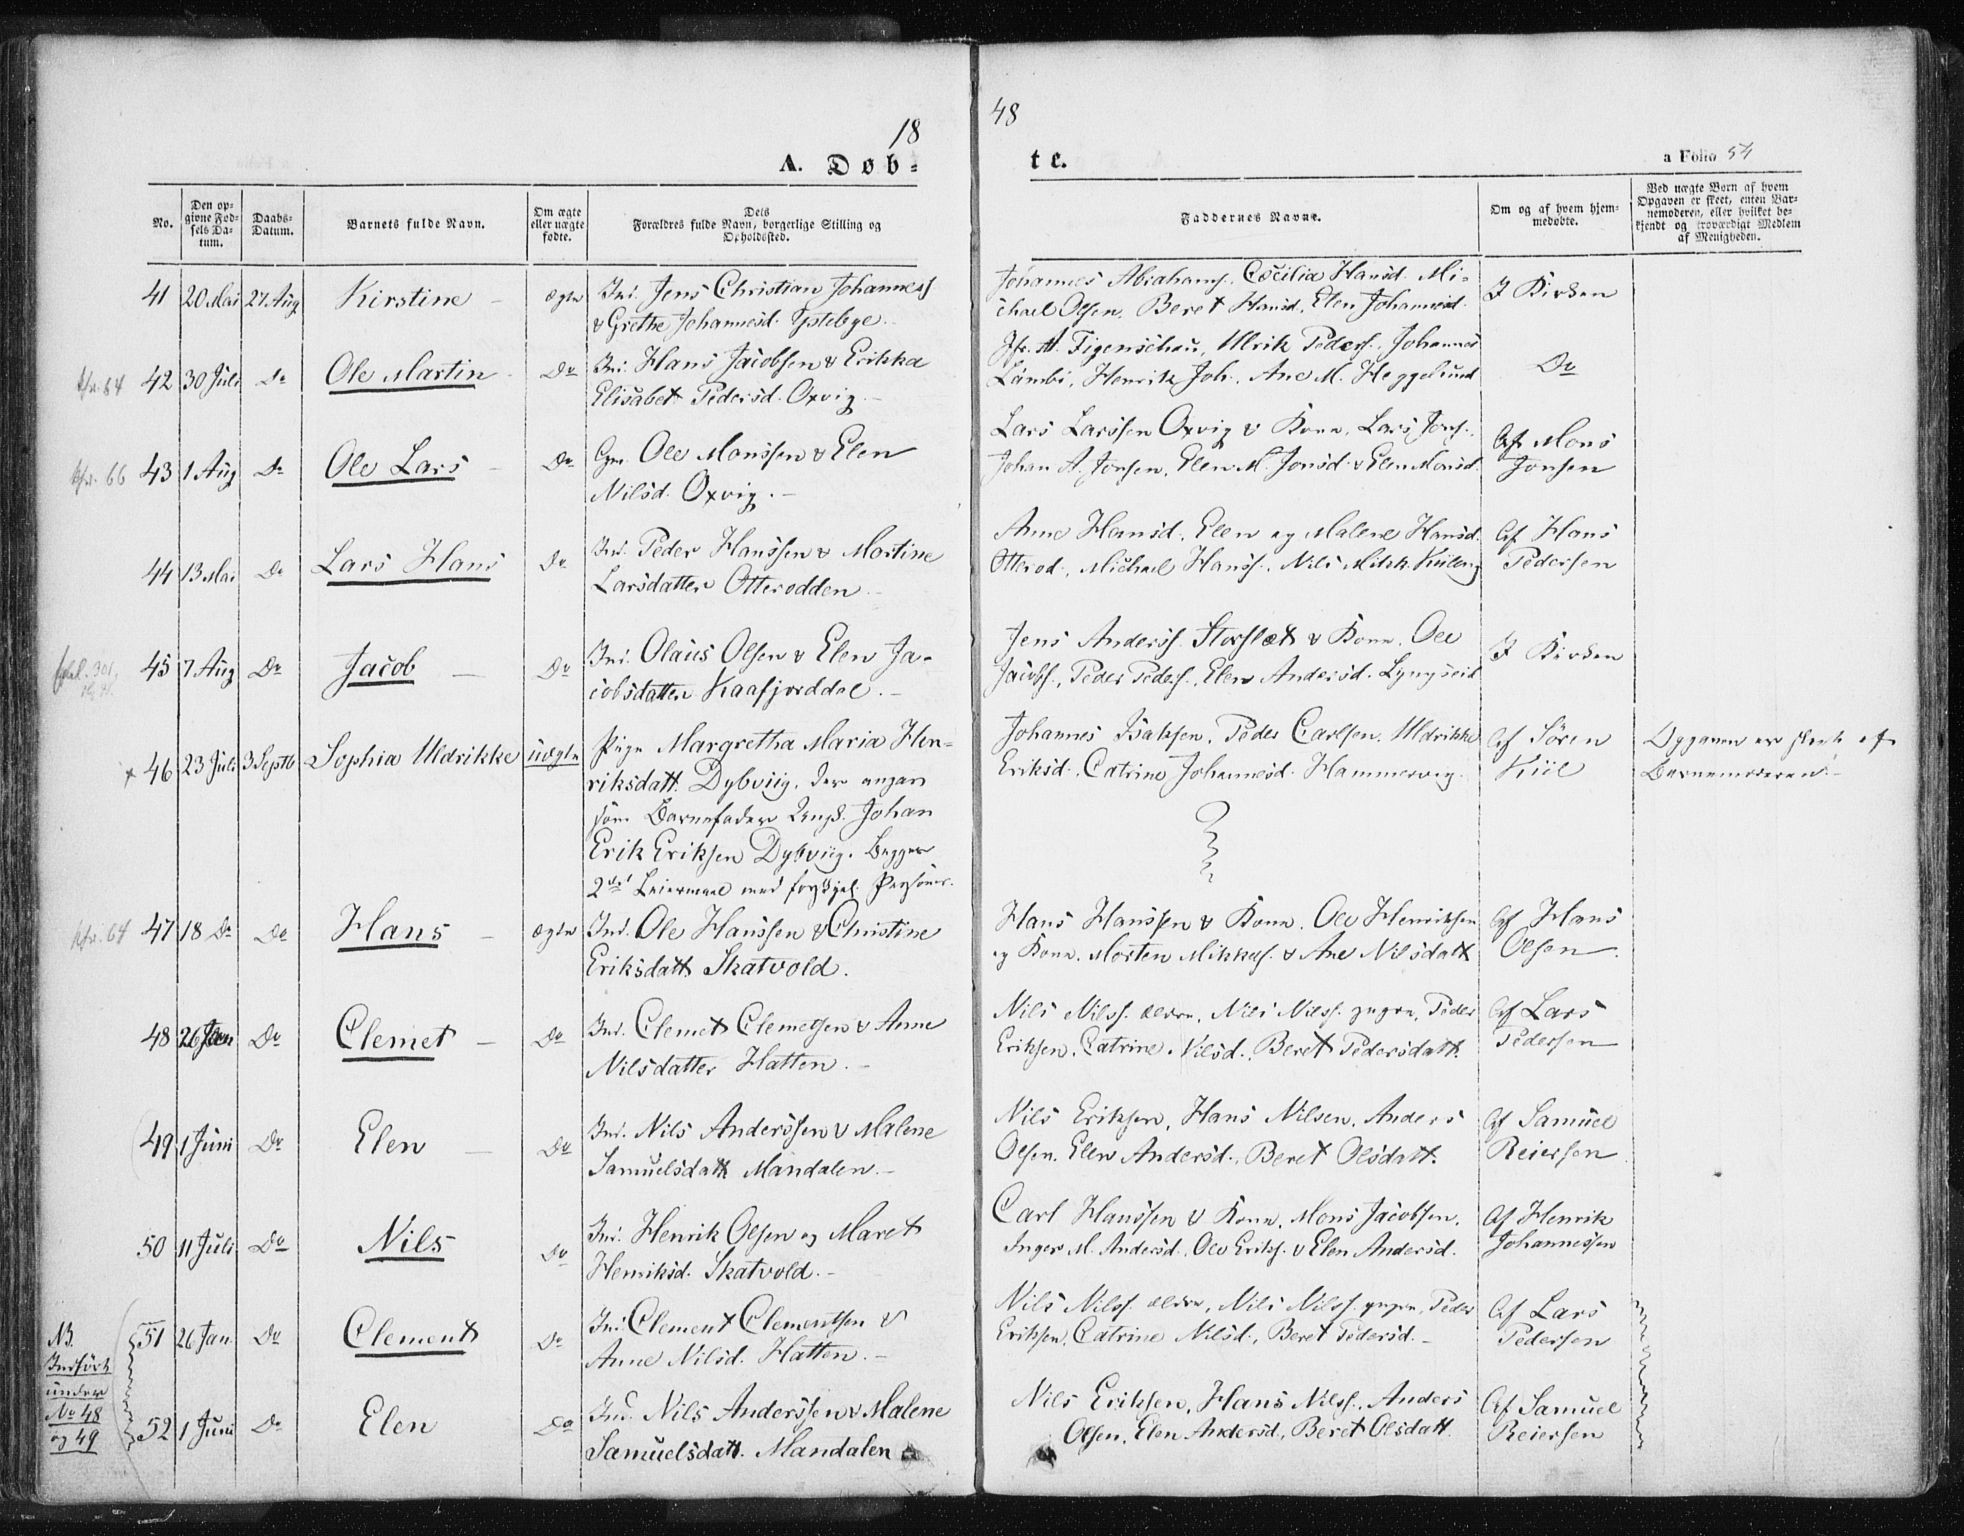 18
48
A. Døb-
te.
a Folio 54
No.
Den op-
givne Fød-
sels Da-
tum.
Daabs-
Datum.
Barnets fulde Navn.
Om ægte
eller uægte
fødte.
Dets
Forældres fulde Navn, borgerlige Stilling og
Opholdssted.
Faddernes Navne.
Om og af hvem hjem-
medøbte.
Ved uægte Børn af hvem
Opgaven er skeet, enten Bar-
nemoderen, eller hvilket be-
kjendt og troværdigt Medlem
af Menigheden.
41 20 Mai 27. Aug Kirstine – ægte Ind. Jens Christian Johannesf
& Grethe Johannesd. Ystebye.
Johannes Abrahams, Cœcilia Hansd. Mi-
chael Olsen, Beret Hansd, Elen Johannesd.
I Kirken
42 30 Juli Do Ole Martin – Do Ind. Hans Jacobsen & Erikka
Elisabet Pedersd. Oxvig. –
Jfr. A. Figenschau, Ulrik Peders., Johannes
Lambi, Henrik Joh., Ane M. Heggelund
Do
43 1 Aug Do Ole Lars – Do Gm. Ole Monssen & Elen
Nilsd. Oxvig. –
Lars Larssen Oxvig & Kone, Lars Jons.,
Johan A. Jonsen, Elen M. Jonsd. & Elen Monsd.
Af Mons
Jonsen
44 13 Mai Do Lars Hans Do Ind. Peder Hanssen & Martine
Larsdatter Otterodden. –
Anne Hansd., Elen og Malene Hansd.
Otterod., Michael Hanss., Nils Mikk. Kiileng
Af Hans
Pedersen
45 7 Aug Do Jacob – Do Ind. Olaus Olsen & Elen Ja-
cobsdatter Kaafjorddal. –
Jens Anderss. Storslæt & Kone, Ole
Jacobs., Peder Peders., Elen Andersd. Lyngseid
I Kirken
46 23 Juli 3 Septb Sophia Uldrikke uægte Pige Margretha Maria Hen-
riksdatt. Dybviig, der angav
som Barnefader Ungk. Johan
Erik Eriksen Dybviig. Begges
2det Leiermaal med forskjel. Personer.
Johannes Isaksen, Peder Carlsen, Uldrikke
Eriksd., Catrine Johannesd. Hammervig
Af Sören
Kiil
Opgaven er skeet af
Barnemoderen. –
47 18 Do Do Hans – ægte Ind. Ole Hanssen & Christine
Eriksdatt Skatvold.
Hans Hanssen & Kone, Ole Henriksen
og Kone, Morten Mikkels. & Ane Nilsdatt
Af Hans
Olsen.
48 26 Jan Do Clemet – Do Ind. Clemet Clemetsen & Anne
Nilsdatter Hatten. –
Nils Nilss. ældre, Nils Nilss. yngre, Peder
Eriksen, Catrine Nilsd., Beret Pedersdatt.
Af Lars
Pedersen
49 1 Juni Do Elen – Do Ind. Nils Anderssen & Malene
Samuelsdatt Mandalen. –
Nils Eriksen, Hans Nilsen, Anders
Olsen, Elen Andersd., Beret Olsdatt.
Af Samuel
Reiersen
50 11 Juli Do Nils Do Ind. Henrik Olsen og Maret
Henriksd. Skatvold. –
Carl Hanssen & Kone, Mons Jacobsen,
Inger M. Andersd., Ole Eriks. & Elen Andersd.
Af Henrik
Johannessen
NB.
Indført
under
No 48
og 49
51 26 Jan Do Clement Do Ind Clement Clementsen &
Anne Nilsd. Hatten. –
Nils Nilss. ældre, Nils Nilss. yngre, Peder
Eriksen, Catrine Nilsd., Beret Pedersd. –
Af Lars
Pedersen
52 1 Juni Do Elen Do Ind. Nils Anderssen & Malene
Samuelsdatt. Mandalen
Nils Eriksen, Hans Nilss., Anders
Olsen, Elen Andersd, Beret Olsdatt.
Af Samuel
Reiersen